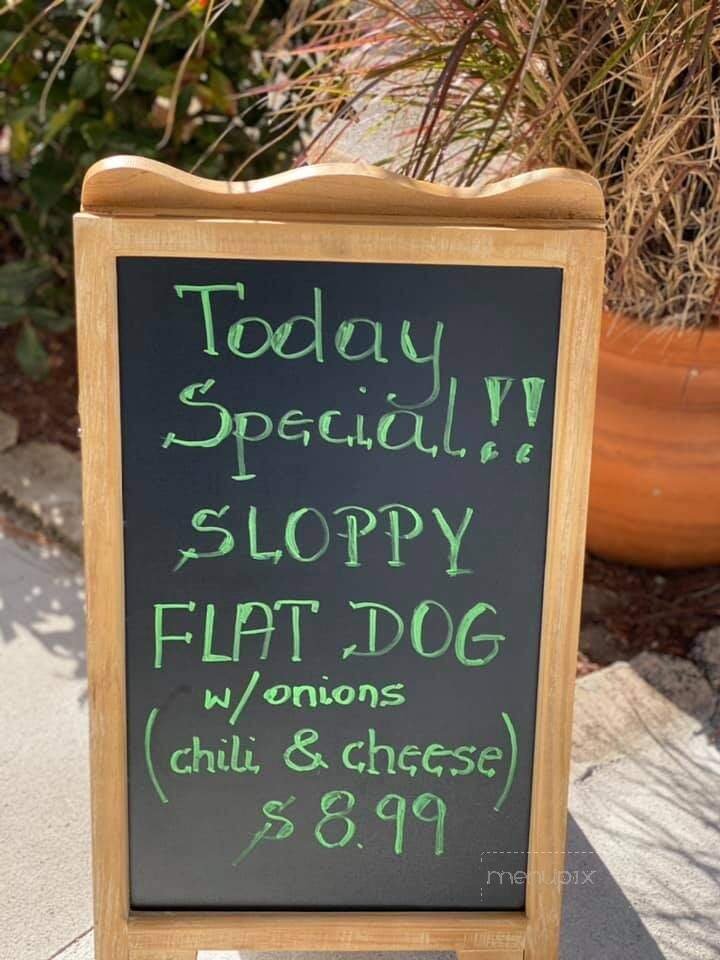 Today
Special!!
SLOPPY
FLAT DOG
w/onions
(chili & cheese)
$8.99
menupix